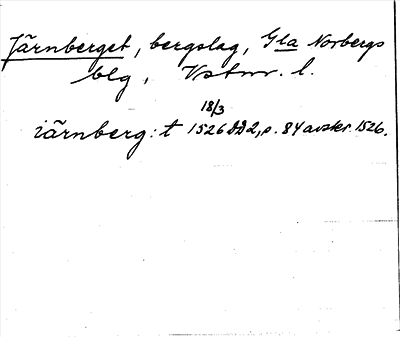 Järnberget, bergslag, Gla Norbergs
blg, Vstm. l.
18/3
iärnberg:t 1526 DD2, s. 84 avskr. 1526.